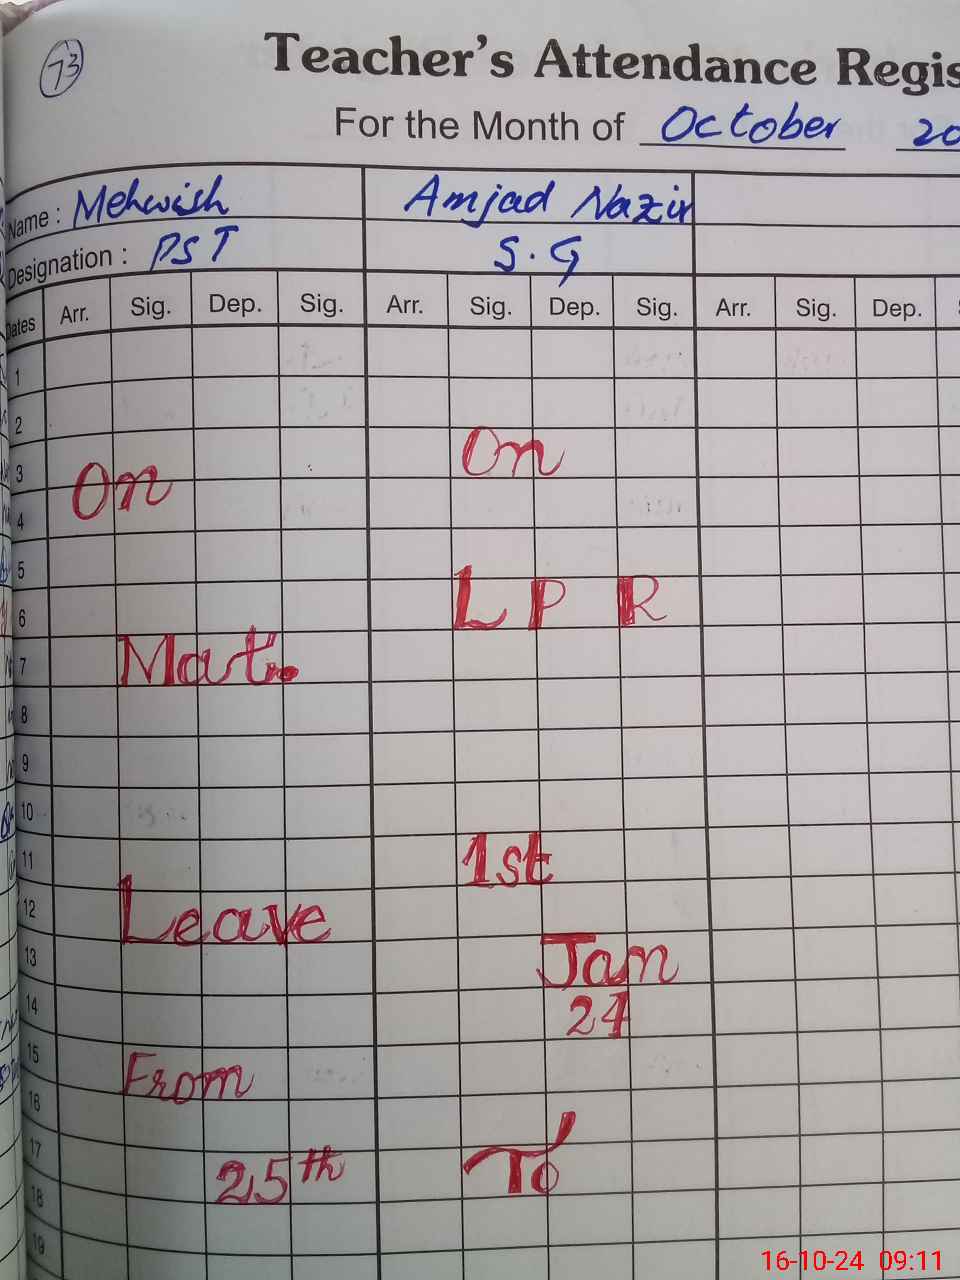 73
Teacher's Attendance Regis
For the Month of October 20
Name : Mehwish Amjad Nazir
Designation : PST S.G
Dates Arr. Sig. Dep. Sig. Arr. Sig. Dep. Sig. Arr. Sig. Dep.
1
2
3 On
4 On
5
6 L P R
7 Mat.
8
9
10
11 1st
12 Leave
13 Jan
14 24
15
16 From
17 To
18 25th
19
16-10-24 09:11